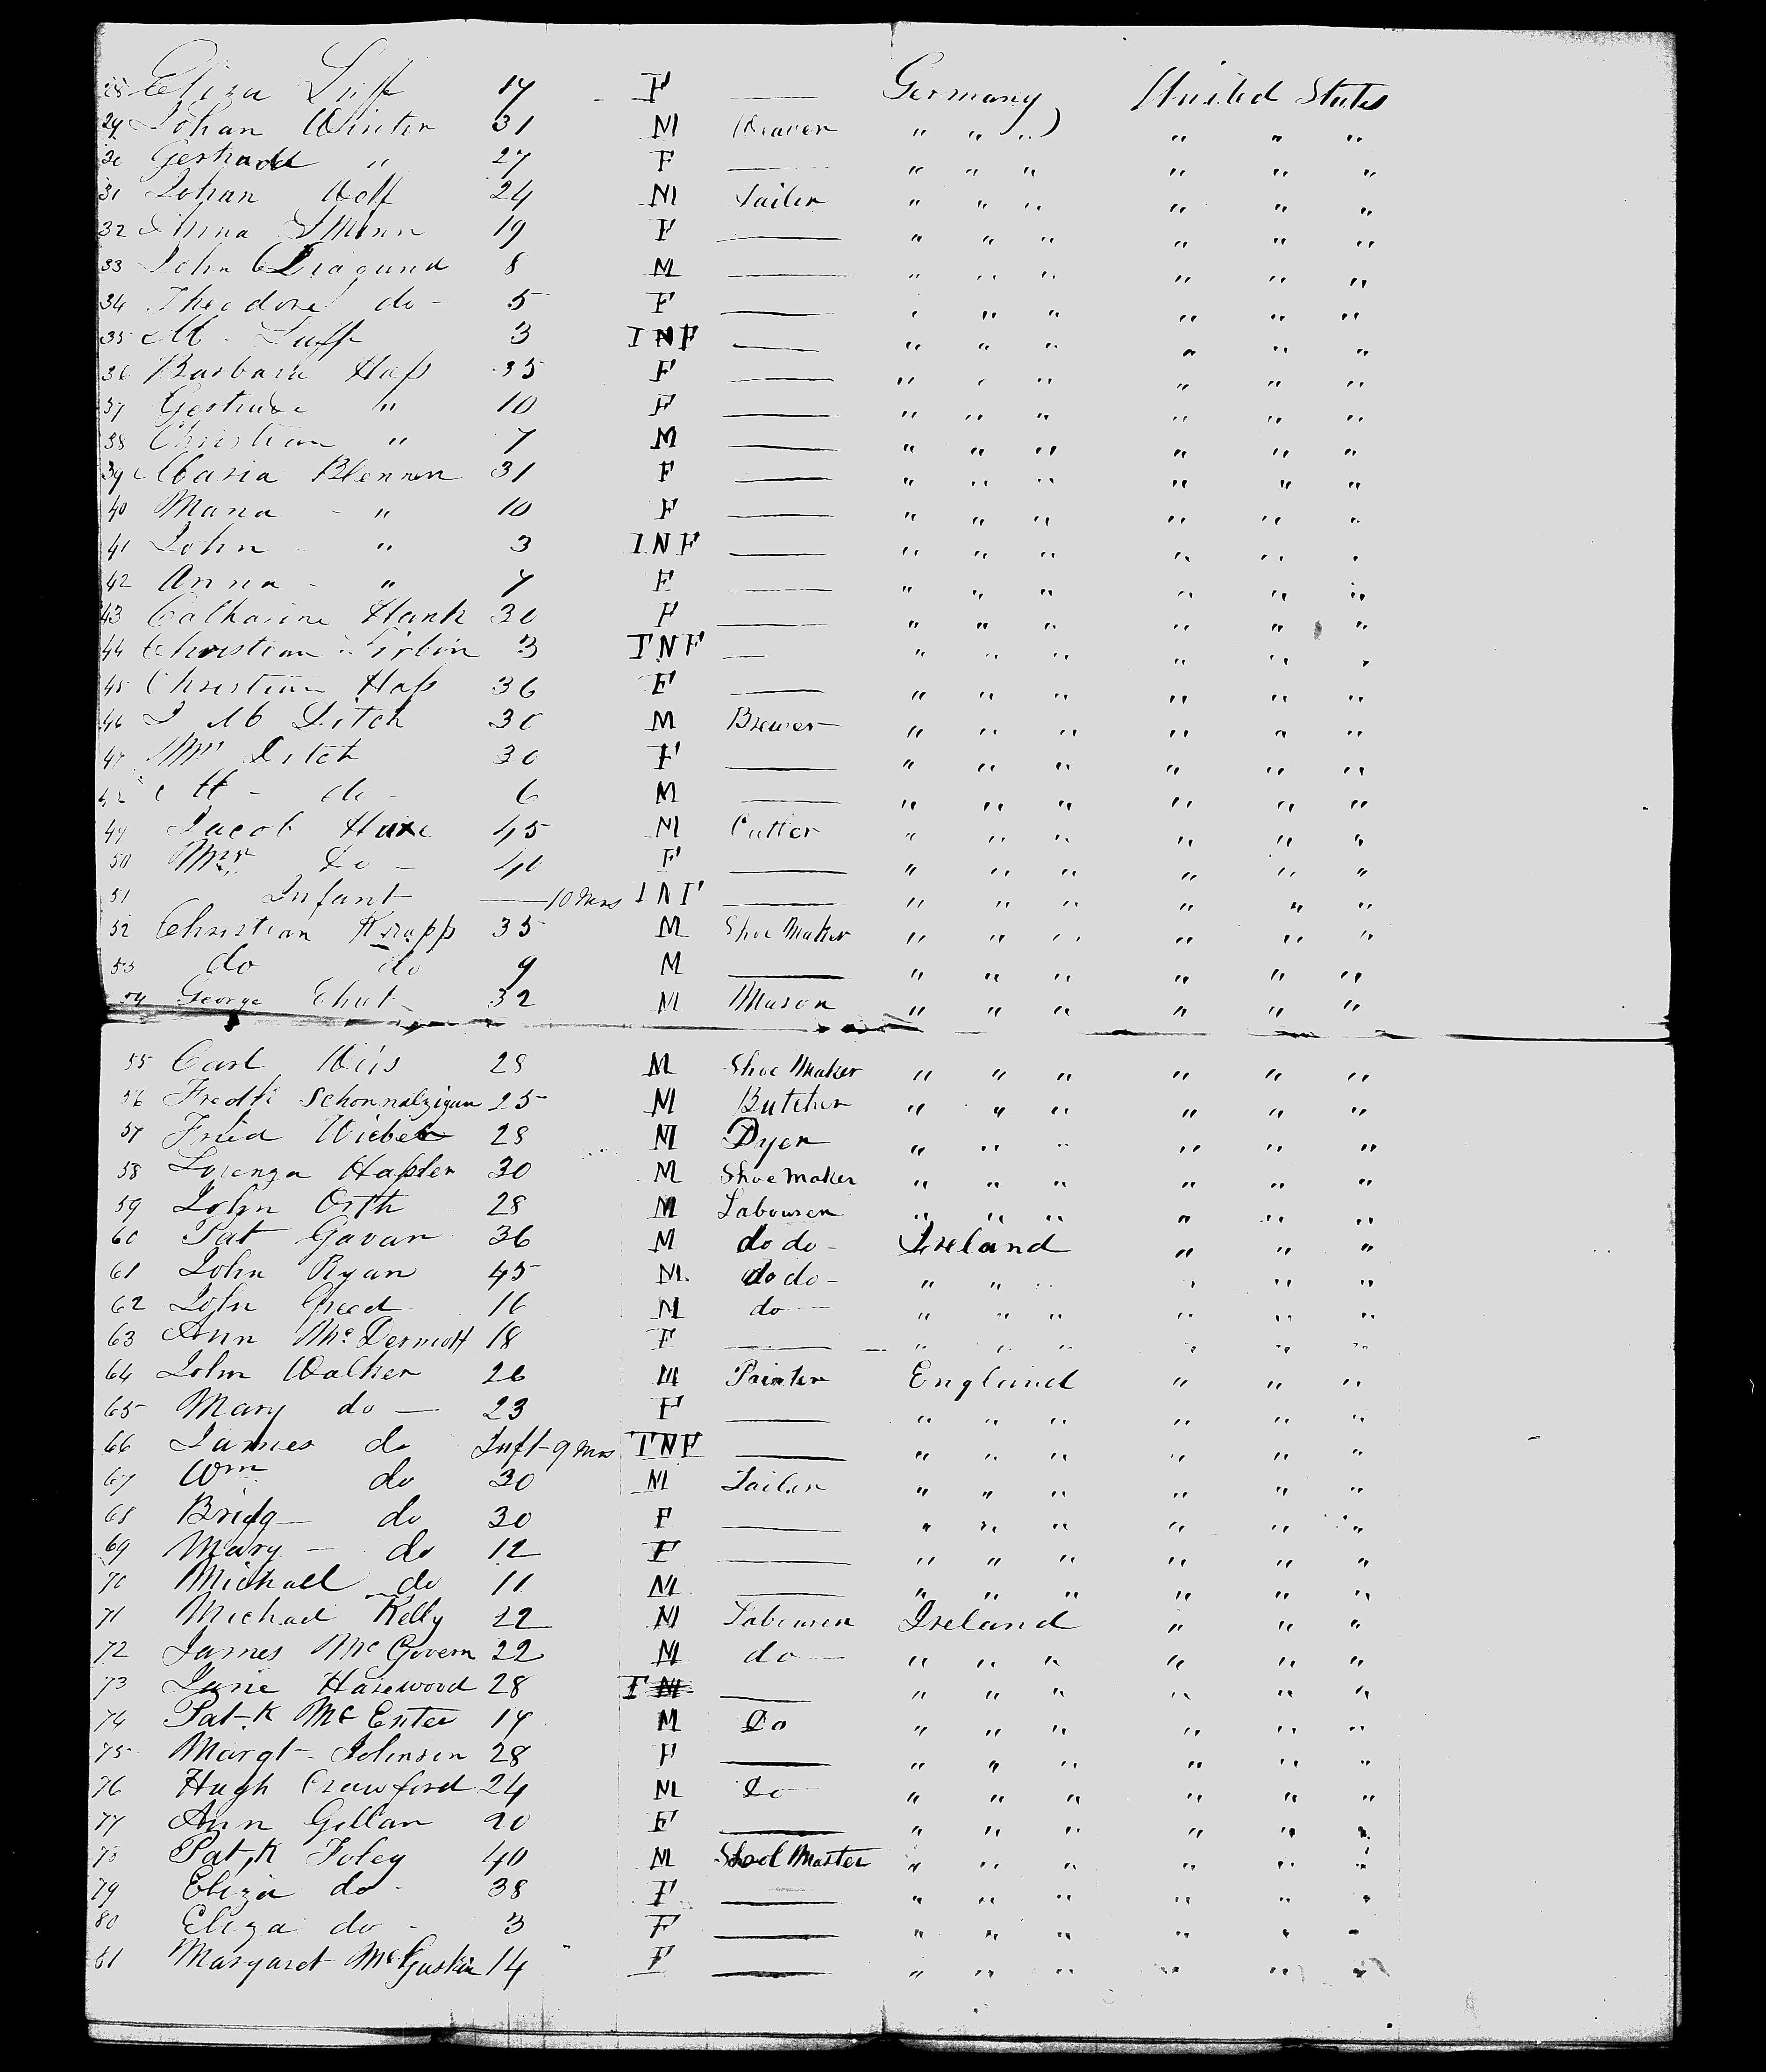 28 Eliza Luff 17 F — Germany United States
29 Johan Winter 31 M Weaver " " " " " "
30 " 27 F — " " " " " "
31 Johan Wolf 24 M Tailer " " " " " "
32 Anna 19 F — " " " " " "
33 John 8 M — " " " " " "
34 Theodore do - 5 F — " " " " " "
35 M - Luff 3 INF — " " " " " "
36 Barbara Haß 35 F — " " " " " "
37 Gertrude " 10 F — " " " " " "
38 Christian " 7 M — " " " " " "
39 Maria Blennen 31 F — " " " " " "
40 Maria - " 10 F — " " " " " "
41 John " 3 INF — " " " " " "
42 Anna - " 7 F — " " " " " "
43 Catharine Hank 30 F — " " " " " "
44 Christian 3 INF — " " " " " "
45 Christian Haß 36 F — " " " " " "
46 J M Litch 30 M Brewer " " " " " "
47 Mrs Litch 30 F — " " " " " "
48 M - do - 6 M — " " " " " "
49 Jacob Huxe 45 M Cutter " " " " " "
50 Mrs do - 40 F — " " " " " "
51 Infant — 10 Mos INF — " " " " " "
52 Christian Krapp 35 M Shoe Maker " " " " " "
53 do do 9 M — " " " " " "
54 George Ehut 32 M Mason " " " " " "
55 Carl Weis 28 M Shoe Maker " " " " " "
56 Fredk Schonnalzigan 25 M Butcher " " " " " "
57 Fried Wiebel 28 M Dyer " " " " " "
58 Lorenza Haßler 30 M Shoe maker " " " " " "
59 John Orth 28 M Labourer " " " " " "
60 Pat Gavan 36 M do do - Ireland " " "
61 John Ryan 45 M. do do - " " " " "
62 John Greed 16 M do — " " " " " "
63 Ann McDermott 18 F — " " " " " "
64 John Walker 26 M Painter England " " "
65 Mary do — 23 F — " " " " " "
66 James do Inft - 9 Mos INF — " " " " " "
67 Wm do 30 M Tailer " " " " " "
68 Bridg — do 30 F — " " " " " "
69 Mary — do 12 F — " " " " " "
70 Michael do 11 M — " " " " " "
71 Michael Kelly 22 M Labourer Ireland " " "
72 James McGovern 22 M do — " " " " " "
73 Jane Harewood 28 F — " " " " " "
74 Pat-k McEntee 17 M Do " " " " " "
75 Margt - Johnson 28 F — " " " " " "
76 Hugh Crawford 24 M Do " " " " " "
77 Ann Gillan 20 F — " " " " " "
78 Pat,k Foley 40 M Shool Master " " " " " "
79 Eliza do - 38 F — " " " " " "
80 Eliza do - 3 F — " " " " " "
81 Margaret McGuskin 14 F — " " " " " "